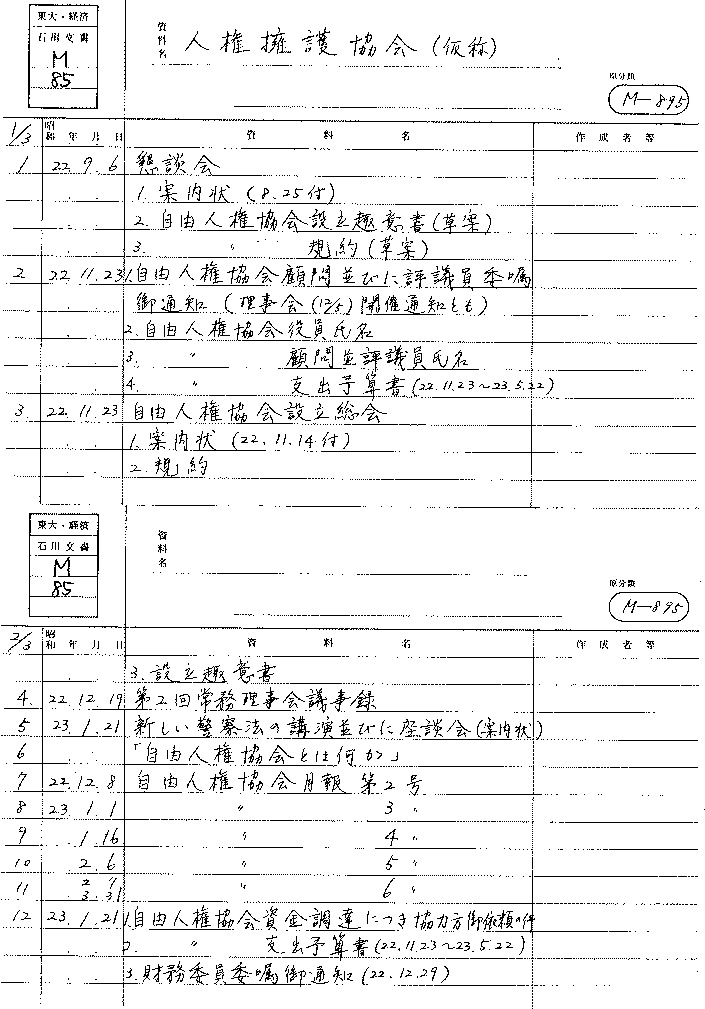 東大・経済
石川文書
M
85
資料名 人権擁護協会(仮称)
原分類
M-895
1/3 昭和 年 月 日 資 料 名 作成者等
1 22 9 6 懇談会
1. 案内状 (8.25付)
2. 自由人権協会設立趣意書(草案)
3. 〃 規約(草案)
2 22.11.23 1.自由人権協会顧問並びに評議員委嘱
御通知 (理事会(12/5)開催通知とも)
2.自由人権協会役員氏名
3. 〃 顧問並評議員氏名
4. 〃 支出予算書(22.11.23~23.5.22)
3. 22.11.23 自由人権協会設立総会
1. 案内状 (22.11.14付)
2. 規約
東大・経済
石川文書
M
85
資料名
原分類
M-895
2/3 昭和 年 月 日 資 料 名 作成者等
3. 設立趣意書
4. 22.12.19 第2回常務理事会議事録
5 23.1.21 新しい警察法の講演並びに座談会(案内状)
6 「自由人権協会とは何か」
7 22.12.8 自由人権協会月報 第2号
8 23.1.1 〃 3 〃
9 1.16 〃 4 〃
10 2.6 〃 5 〃
11 2 7 3.31 〃 6 〃
12 23.1.21 1.自由人権協会資金調達につき協力方御依頼の件
2. 〃 支出予算書(22.11.23~23.5.22)
3.財務委員委嘱御通知(22.12.29)